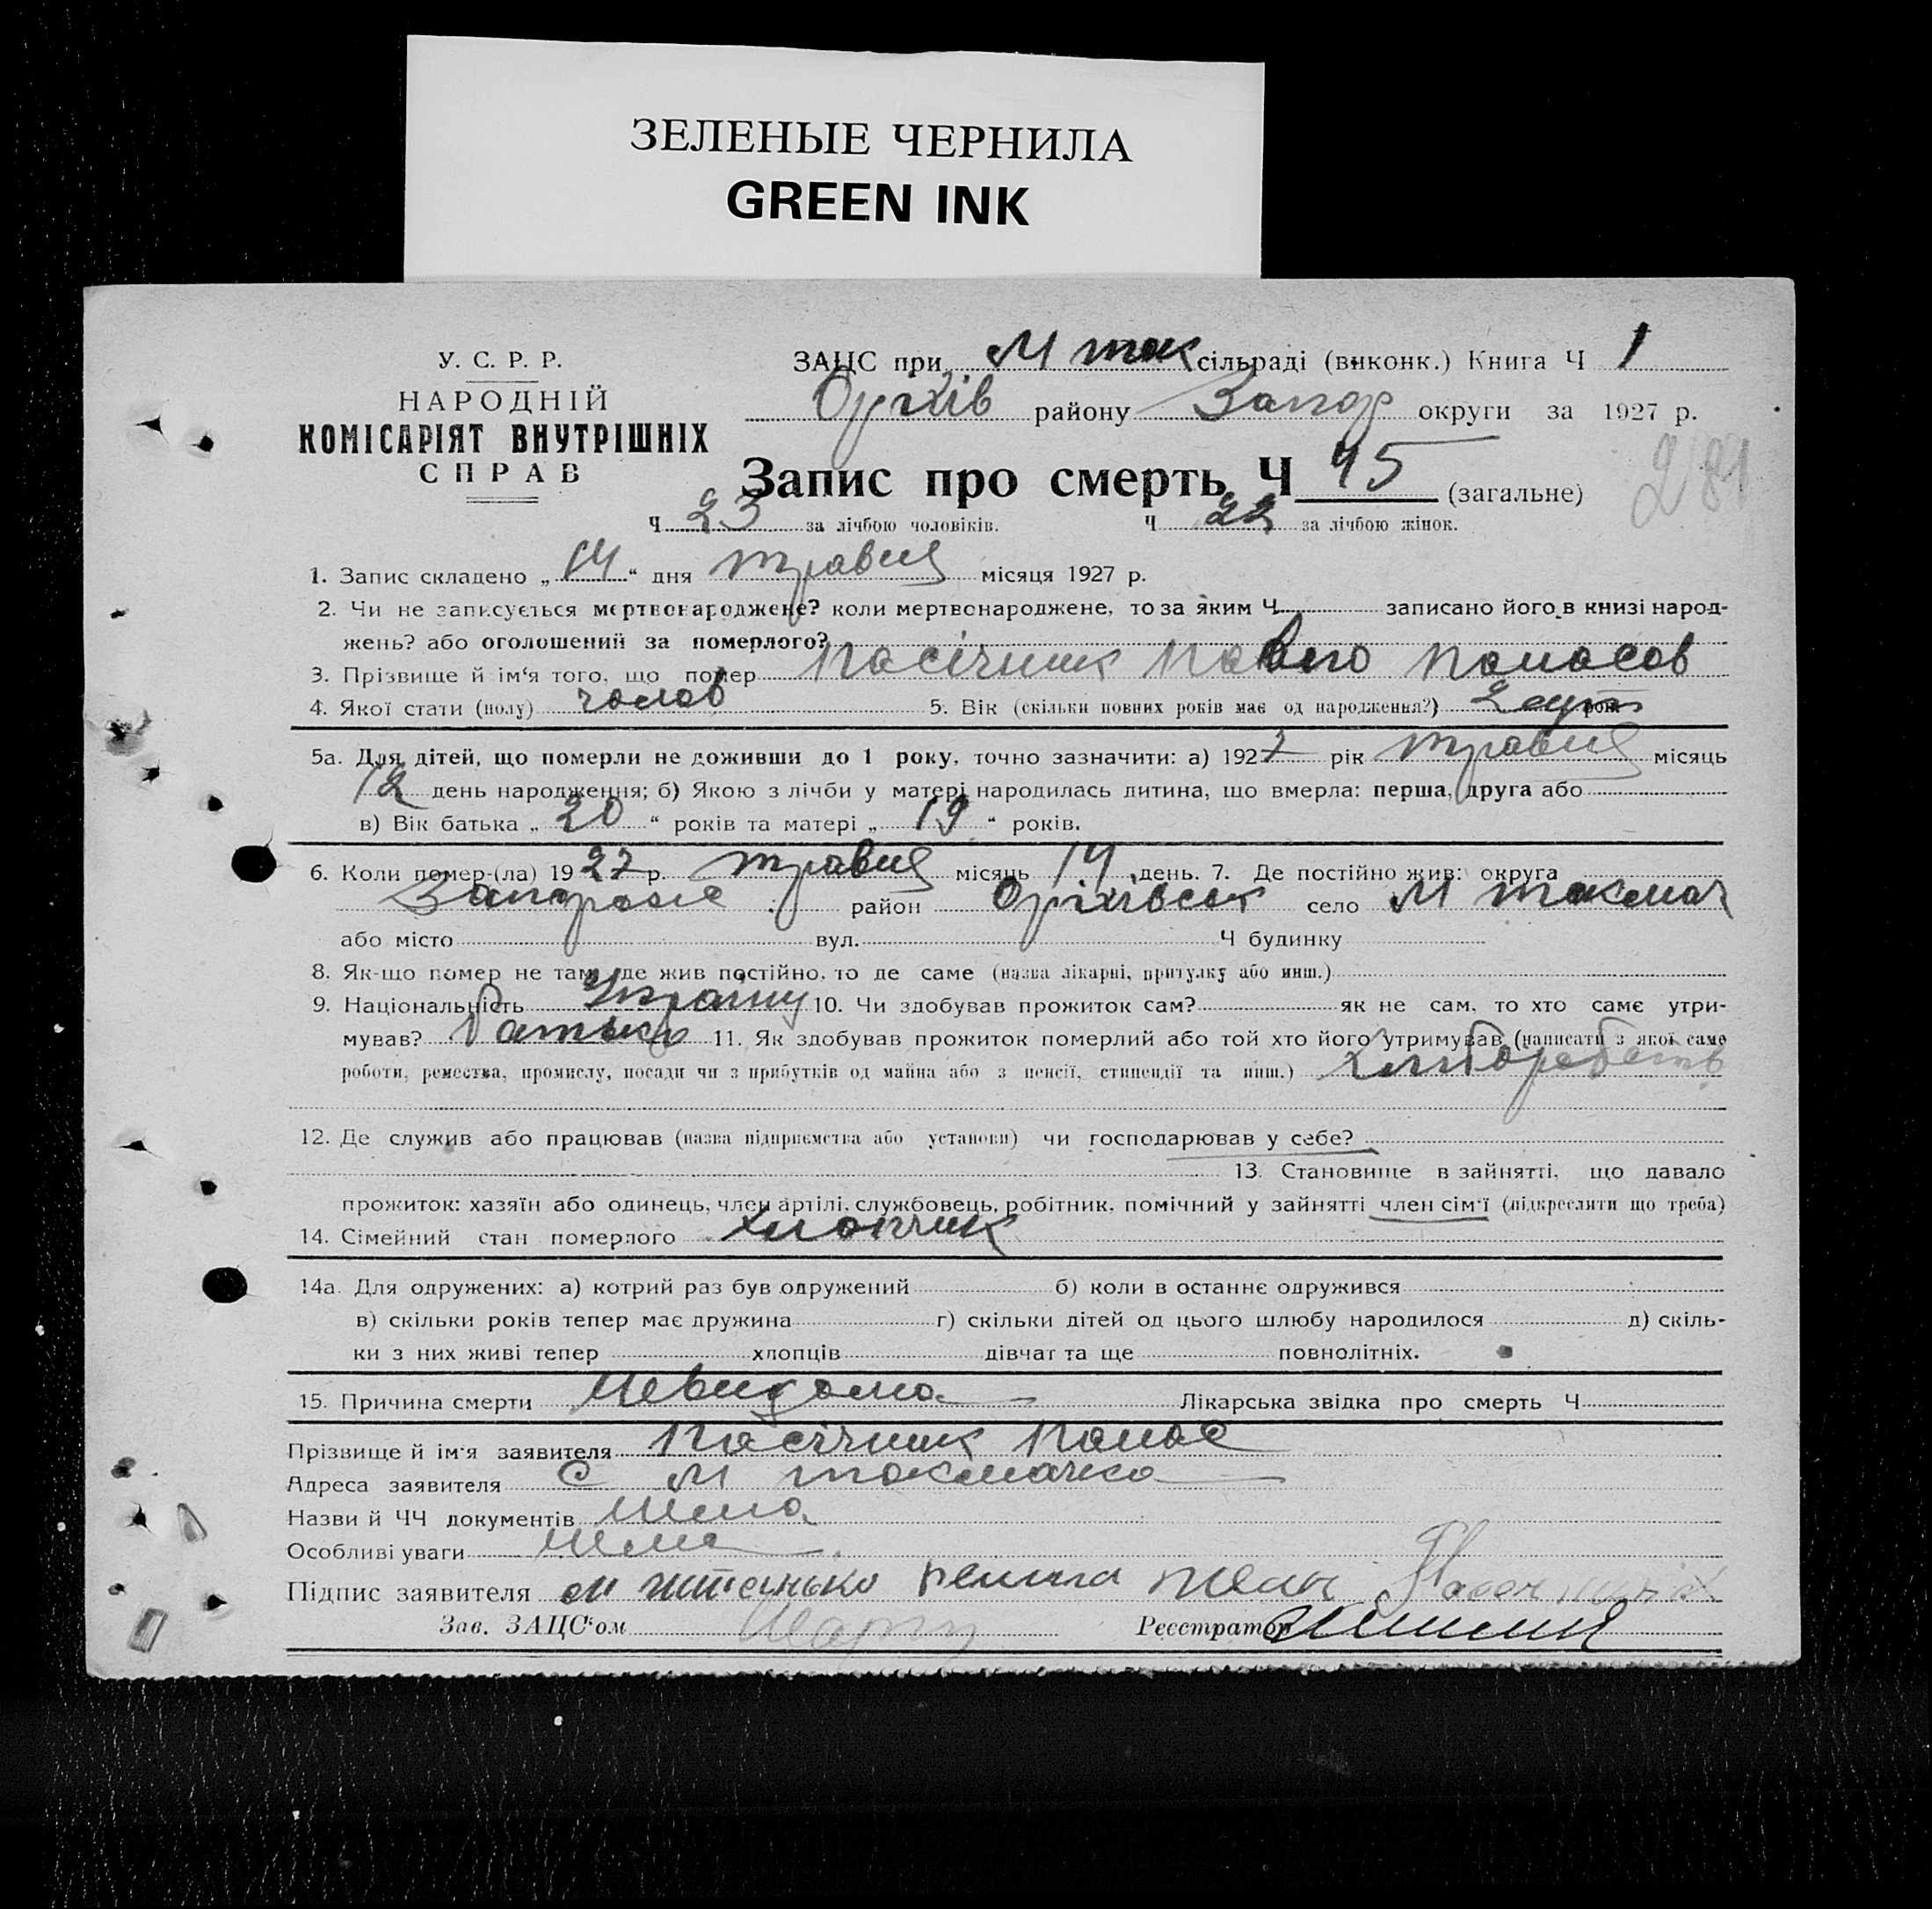 ЗЕЛЕНЫЕ ЧЕРНИЛА
GREEN INK
У. С. Р. Р.
НАРОДНІЙ
КОМІСАРІЯТ ВНУТРІШНІХ
СПРАВ
ЗАЦС при М ток сільраді (виконк.) Книга Ч 1
Оріхів району Запор округи за 1927 р.
Запис про смерть Ч 45 (загальне)
281
Ч 23 за лічбою чоловіків. Ч 22 за лічбою жінок.
1. Запис складено „ 14 “ дня травня місяця 1927 р.
2. Чи не записується мертвонароджене? коли мертвонароджене, то за яким Ч записано його в книзі народ-
жень? або оголошений за померлого?
3. Прізвище й ім'я того, що помер Пасічник Павло Панасов
4. Якої стати (полу) чолов 5. Вік (скільки повних років має од народження?) 2 сут рок
5а. Для дітей, що померли не доживши до 1 року, точно зазначити: а) 1927 рік травня місяць
12 день народження; б) Якою з лічби у матері народилась дитина, що вмерла: перша, друга або
в) Вік батька „ 20 “ років та матері „ 19 “ років.
6. Коли помер-(ла) 1927 р. травня місяць 14 день. 7. Де постійно жив: округа
Запорожє район Оріхівськ село М Токмач
або місто вул. Ч будинку
8. Як-що помер не там, де жив постійно, то де саме (назва лікарні, притулку або инш.)
9. Національність Україну 10. Чи здобував прожиток сам? як не сам, то хто саме утри-
мував? батько 11. Як здобував прожиток померлий або той хто його утримував (написати з якої саме
роботи, ремества, промислу, посади чи з прибутків од майна або з пенсії, стипендії та инш.) хліборобств
12. Де служив або працював (назва підприємства або установи) чи господарював у себе?
13. Становище в зайнятті, що давало
прожиток: хазяїн або одинець, член артілі, службовець, робітник, помічний у зайнятті член сім'ї (підкреслити що треба)
14. Сімейний стан померлого хлопчик
14а. Для одружених: а) котрий раз був одружений б) коли в останнє одружився
в) скільки років тепер має дружина г) скільки дітей од цього шлюбу народилося д) скіль-
ки з них живі тепер хлопців дівчат та ще повнолітніх.
15. Причина смерти Невидома Лікарська звідка про смерть Ч
Прізвище й ім'я заявителя Пасічник Панас
Адреса заявителя С М Токмачка
Назви й ЧЧ документів Нема
Особливі уваги Нема
Підпис заявителя
Зав. ЗАЦС'ом Реєстратор